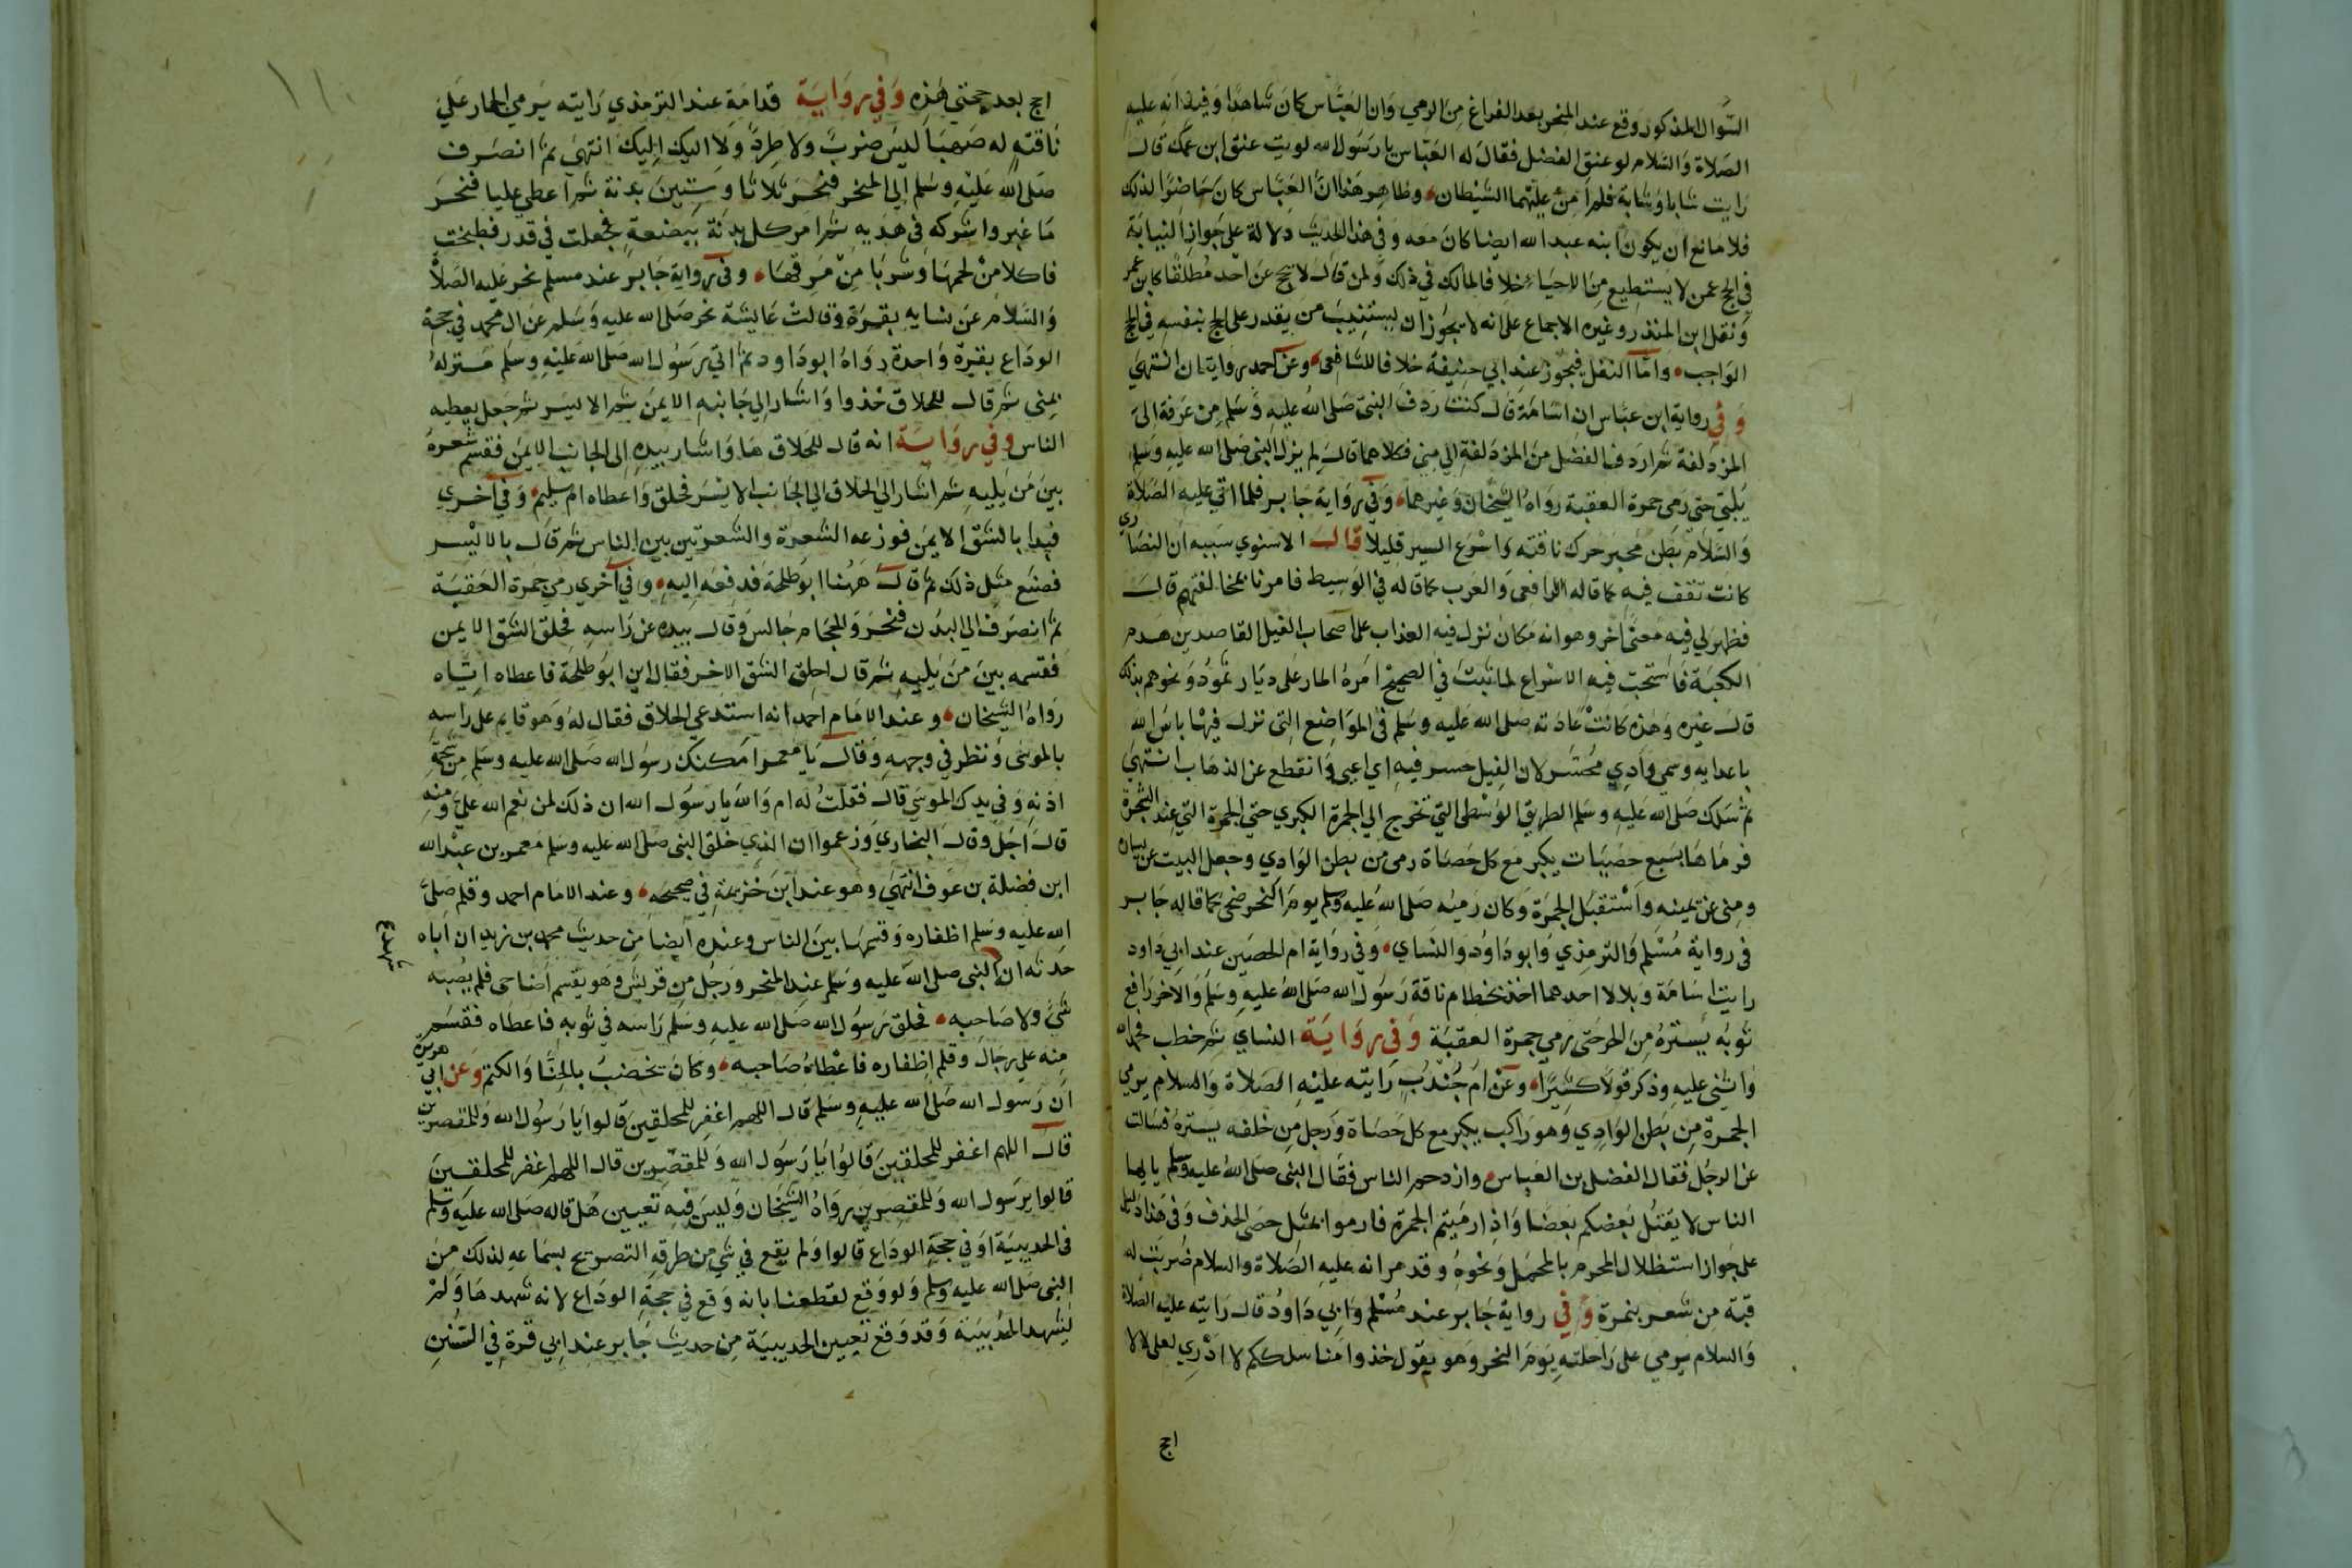 السوال المذكور وقع عند المنحر بعد الفراغ من الرمي وان العباس كان شاهدا وفيه انه عليه
الصلاة والسلام لوى عنق الفضل فقال له العباس يا رسول الله لويت عنق ابن عمك قال
رايت شابا وشابة فلم آمن عليهما الشيطان وظاهر هذا ان العباس كان حاضرا لذلك
فلا مانع ان يكون ابنه عبد الله ايضا كان معه وفي هذا الحديث دلالة على جواز النيابة
في الحج عمن لا يستطيع من الاحياء خلافا لمالك في ذلك ولمن قال لا يحج عن احد مطلقا كابن عمر
ونقل ابن المنذر وغيره الاجماع على انه لا يجوز ان يستنيب من يقدر على الحج بنفسه في الحج
الواجب واما النفل فيجوز عند ابي حنيفة خلافا للشافعي وعن احمد روايتان انتهى
وفي رواية ابن عباس ان اسامة قال كنت ردف النبي صلى الله عليه وسلم من عرفة الى
المزدلفة ثم اردف الفضل من المزدلفة الي منى فكلاهما قال لم يزل النبي صلى الله عليه وسلم
يلبي حتى رمى جمرة العقبة رواه الشيخان وغيرهما وفي رواية جابر فلما اتي عليه الصلاة
والسلام بطن محسر حرك ناقته واسرع السير قليلا قال الاسنوي سببه ان النصارى
كانت تقف فيه كما قاله الرافعي والعرب كما قاله في الوسيط فامرنا بمخالفتهم قال
فظهر لي فيه معنى اخر وهو انه مكان نزل فيه العذاب على اصحاب الفيل القاصدين هدم
الكعبة فاستحب فيه الاسراع لما ثبت في الصحيح امره المار على ديار ثمود ونحوهم بذلك
قال غيره وهذه كانت عادته صلى الله عليه وسلم في المواضع التي نزل فيها باس الله
باعدايه وسمي وادي محسر لان الفيل حسر فيه اي اعيى وانقطع عن الذهاب انتهى
ثم سلك صلى الله عليه وسلم الطريق الوسطى التي تخرج الي الجمرة الكبري حتي الجمرة التي عند الشجرة
فرماها بسبع حصيات يكبر مع كل حصاة رمى من بطن الوادي وجعل البيت عن يساره
ومنى عن يمينه واستقبل الجمرة وكان رميه صلى الله عليه وسلم يوم النحر ضحى كما قاله جابر
في رواية مسلم والترمذي وابو داود والنساي وفي رواية ام الحصين عند ابي داود
رايت اسامة وبلالا احدهما اخذ بخطام ناقة رسول الله صلى الله عليه وسلم والاخر رافع
ثوبه يستره من الحر حتى رمى جمرة العقبة وفي رواية النساي ثم خطب فحمد الله
واثنى عليه وذكر قولا كثيرا وعن ام جندب رايته عليه الصلاة والسلام يرمي
الجمرة من بطن الوادي وهو راكب يكبر مع كل حصاة ورجل من خلفه يستره فسالت
عن الرجل فقال الفضل بن العباس وازدحم الناس فقال النبي صلى الله عليه وسلم يا ايها
الناس لا يقتل بعضكم بعضا واذا رميتم الجمرة فارموا بمثل حصى الخذف وفي هذا دليل
على جواز استظلال المحرم بالمحمل ونحوه وقد مر انه عليه الصلاة والسلام ضربت له
قبة من شعر بنمرة وفي رواية جابر عند مسلم وابي داود قال رايته عليه الصلاة
والسلام يرمي على راحلته يوم النحر وهو يقول خذوا مناسككم لا ادري لعلي لا
احج
احج بعد حجتي هذه وفي رواية قدامة عند الترمذي رايته يرمي الجمار علي
ناقته له صهبا ليس ضرب ولا طرد ولا اليك اليك انتهى ثم انصرف
صلى الله عليه وسلم الي المنحر فنحر ثلاثا وستين بدنة ثم اعطى عليا فنحر
ما غبر واشركه في هديه ثم امر كل بدنة ببضعة فجعلت في قدر فطبخت
فاكلا من لحمها وشربا من مرقها وفي رواية جابر عند مسلم نحر عليه الصلاة
والسلام عن نسايه بقرة وقالت عايشة نحر صلى الله عليه وسلم عن ال محمد في حجة
الوداع بقرة واحدة رواه ابو داود ثم اتي رسول الله صلى الله عليه وسلم منزله
بمنى ثم قال للحلاق خذوا واشار الي جانبه الايمن ثم الايسر ثم جعل يعطيه
الناس وفي رواية انه قال للحلاق ها واشار بيده الى الجانب الايمن فقسم شعره
بين من يليه ثم اشار الي الحلاق الي الجانب الايسر فحلق واعطاه ام سليم وفي اخري
فبدا بالشق الايمن فوزعه الشعرة والشعرتين بين الناس ثم قال بالايسر
فصنع مثل ذلك ثم قال ههنا ابو طلحة فدفعه اليه وفي اخري رمي جمرة العقبة
ثم انصرف الي البدن فنحر والحجام جالس وقال بيده عن راسه فحلق الشق الايمن
فقسمه بين من يليه ثم قال احلق الشق الاخر فقال اين ابو طلحة فاعطاه اياه
رواه الشيخان وعند الامام احمد انه استدعي الحلاق فقال له وهو قايم على راسه
بالموسى ونظر في وجهه وقال يا معمر امكنك رسول الله صلى الله عليه وسلم من شحمة
اذنه وفي يدك الموسي قال فقلت له ام والله يا رسول الله ان ذلك لمن نعم الله علي ومنه
قال اجل وقال البخاري وزعموا ان الذي حلق النبي صلى الله عليه وسلم معمر بن عبد الله
ابن فضلة بن عوف انتهى وهو عند ابن خزيمة في صحيحه وعند الامام احمد وقلم صلى
الله عليه وسلم اظفاره وقسمها بين الناس وعنده ايضا من حديث محمد بن زيد ان اباه
حدثه ان النبي صلى الله عليه وسلم عند المنحر ورجل من قريش وهو يقسم اضاحى فلم يصبه
شي ولا صاحبه فحلق رسول الله صلى الله عليه وسلم راسه في ثوبه فاعطاه فقسم
منه على رجال وقلم اظفاره فاعطاه صاحبه وكان يخضب بالحنا والكتم وعن ابي هريرة
ان رسول الله صلى الله عليه وسلم قال اللهم اغفر للمحلقين قالوا يا رسول الله وللمقصرين
قال اللهم اغفر للمحلقين قالوا يا رسول الله وللمقصرين قال اللهم اغفر للمحلقين
قالوا يرسول الله وللمقصرين رواه الشيخان وليس فيه تعيين هل قاله صلى الله عليه وسلم
في الحديبية او في حجة الوداع قالوا ولم يقع في شي من طرقه التصريح بسماعه لذلك من
النبي صلى الله عليه وسلم ولو وقع لقطعنا بانه وقع في حجة الوداع لانه شهدها ولم
يشهد الحديبية وقد وقع تعيين الحديبية من حديث جابر عند ابي قرة في السنن